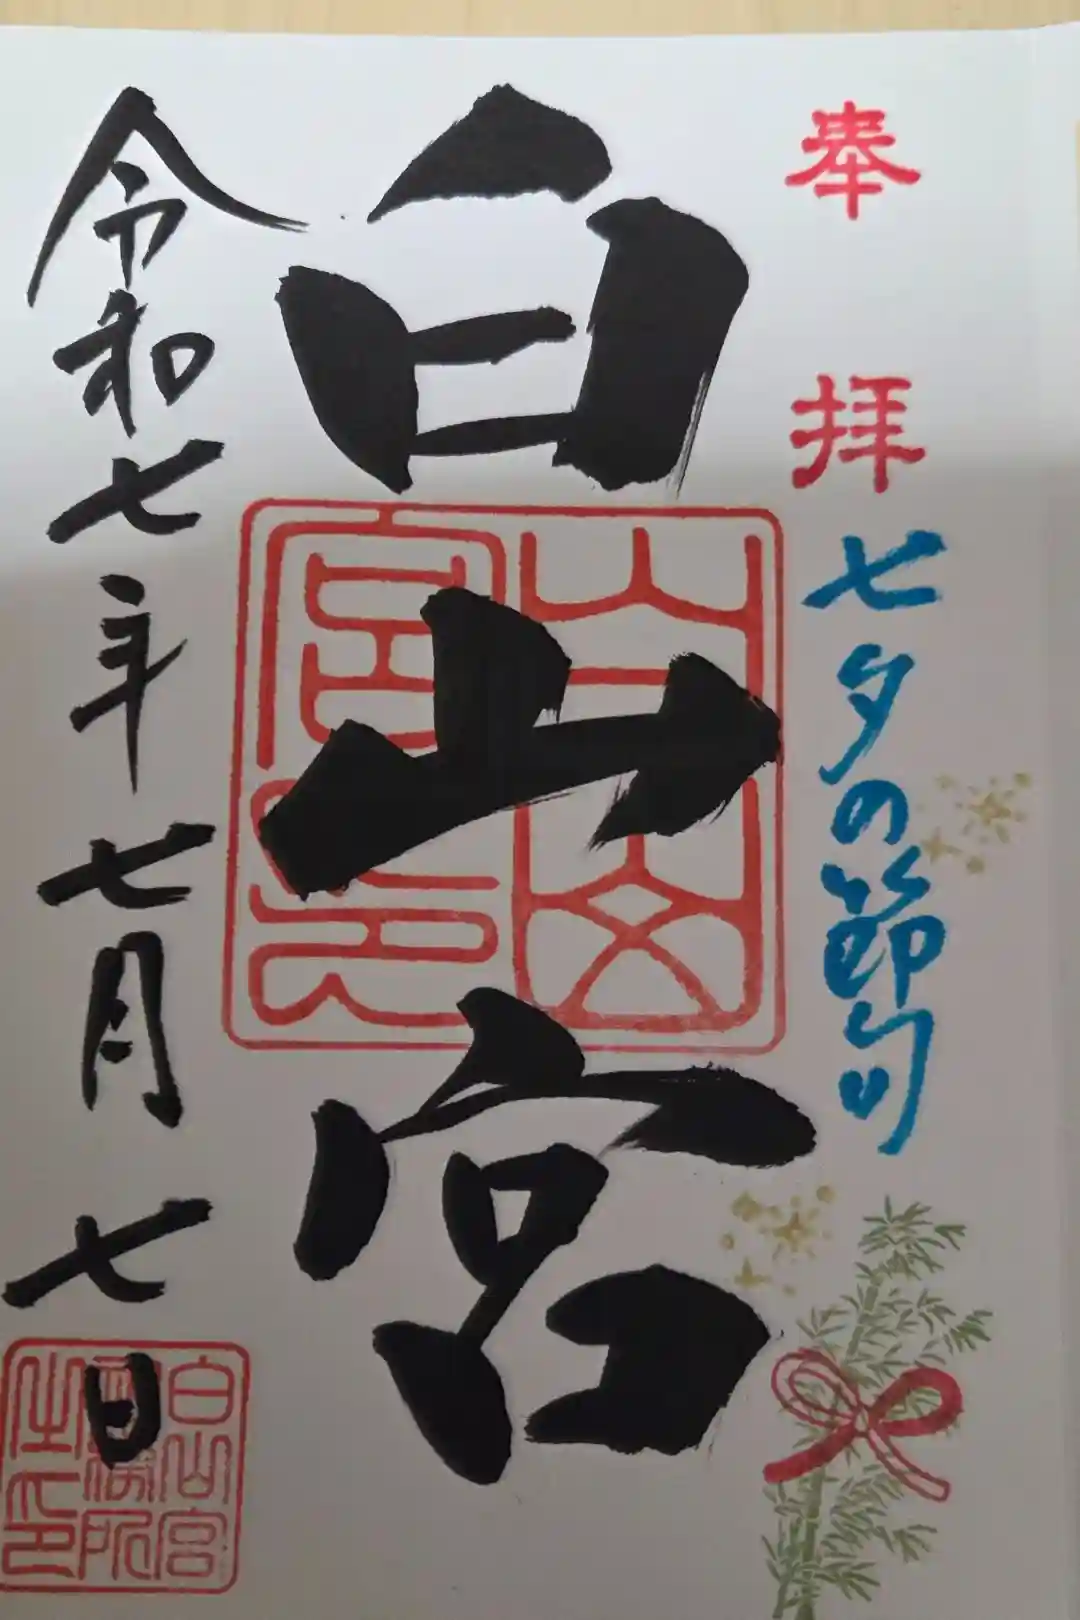 奉拝
七夕の節句
白山宮
令和七年七月七日
白山宮印
白山宮
社務所
之印